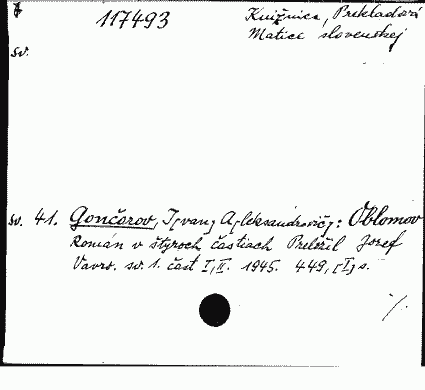 117493
Knižnica, Prekladová
Matice slovenskej
sv.
sv. 41. Gončarov, I[van] A[leksandrovič]: Oblomov
Román v štyroch častiach Preložil Josef
Vavro. sv. 1. část I, II. 1945. 449, [I] s.